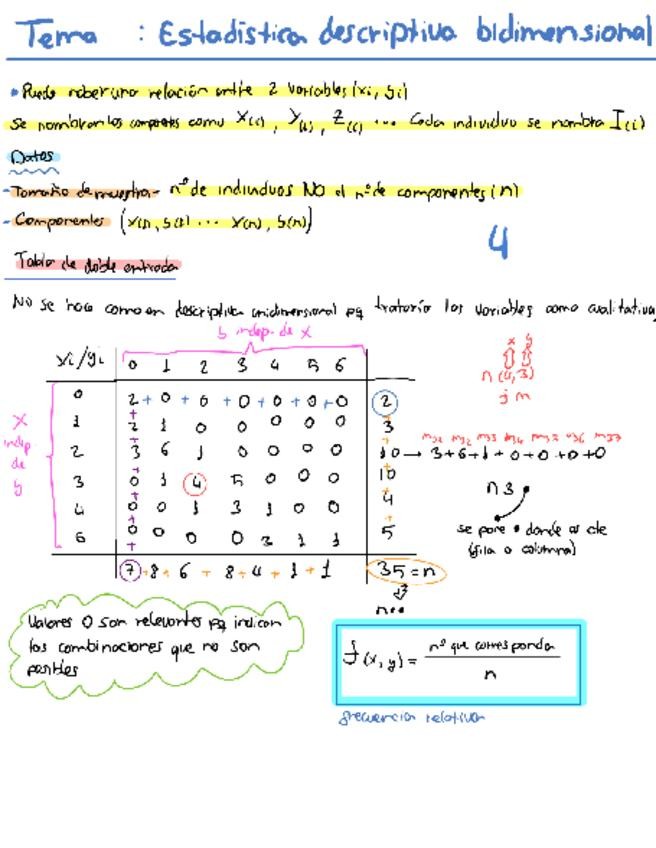 Tema : Estadística descriptiva bidimensional
• Puede haber una relación entre 2 variables (xi, yi)
Se nombran los componentes como X(i), Y(i), Z(i) ... Cada individuo se nombra I(i)
Datos
- Tamaño de muestra - nº de individuos NO el nº de componentes (n)
- Componentes (X(1), y(1) ... X(n), y(n))
4
Tabla de doble entrada
No se hace como en descriptiva unidimensional pq trataría las variables como cualitativas
y indep. de x
xi/yi 0 1 2 3 4 5 6
x y
n (4,3)
j m
0 2 + 0 + 0 + 0 + 0 + 0 + 0 2
1 2 1 0 0 0 0 0 3
2 3 6 1 0 0 0 0 10 → 3+6+1+0+0+0+0
3 0 1 4 5 0 0 0 10
4 0 0 1 3 1 0 0 4
6 0 0 0 0 3 1 1 5
x indep de y
n3•
se pone • donde es de
(fila o columna)
7 + 8 + 6 + 8 + 4 + 1 + 1 35 = n
n••
Valores 0 son relevantes pq indican
las combinaciones que no son
posibles
f(x,y) = nº que corresponda / n
frecuencia relativa